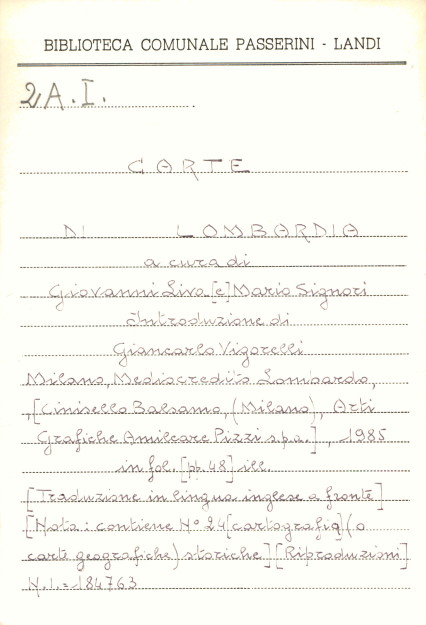 BIBLIOTECA COMUNALE PASSERINI - LANDI
2A.I.
CARTE
DI LOMBARDIA
a cura di
Giovanni Livo [e] Mario Signori
Introduzione di
Giancarlo Vigorelli
Milano, Mediocredito Lombardo,
,[Cinisello Balsamo, (Milano), Arti
Grafiche Amilcare Pizzi s.p.a.], 1985
in fol. [pp. 48] ill.
[Traduzione in lingua inglese a fronte]
[Nota: contiene N° 24 [cartografia] (o
carte geografiche) storiche] [Riproduzioni]
N.I.=184763